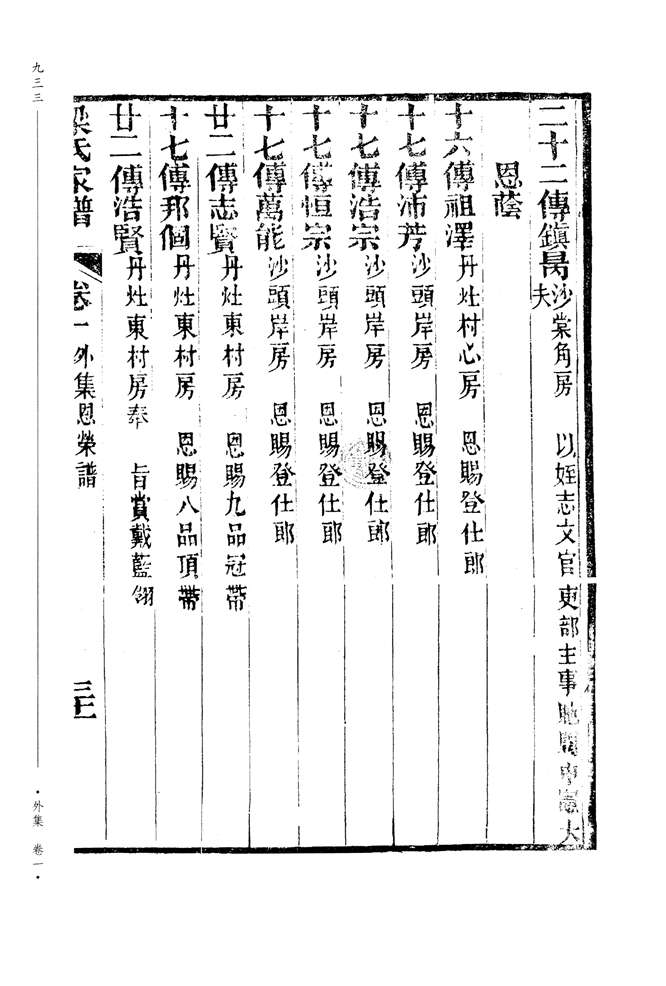 二十二傳鎮昺沙棠角房 以姪志文官吏部主事貤贈中憲大
夫
恩蔭
十六傳祖澤丹灶村心房 恩賜登仕郎
十七傳沛芳沙頭岸房 恩賜登仕郎
十七傳浩宗沙頭岸房 恩賜登仕郎
十七傳恒宗沙頭岸房 恩賜登仕郎
十七傳萬能沙頭岸房 恩賜登仕郎
廿二傳志賢丹灶東村房 恩賜九品冠帶
十七傳邦個丹灶東村房 恩賜八品頂帶
廿二傳浩賢丹灶東村房奉 旨賞戴藍翎
梁氏家譜 卷一外集恩榮譜
九三三
·外集 卷一·